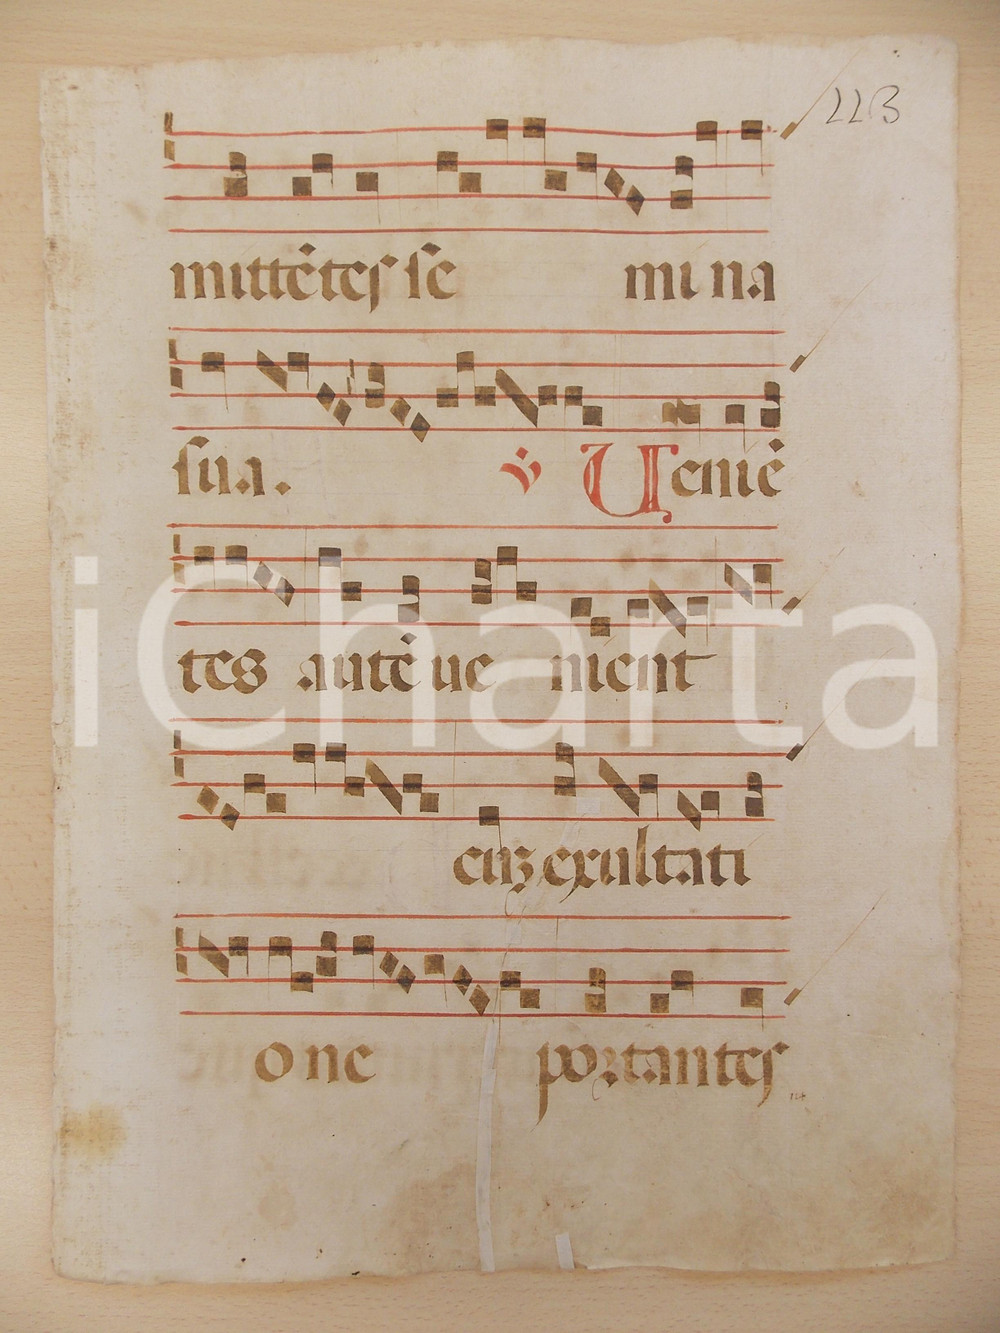 113
mittētes sē mina
sua. ℣ Veniē
tes autē ue nient
cuʒ exultati
one portantes
iCharta